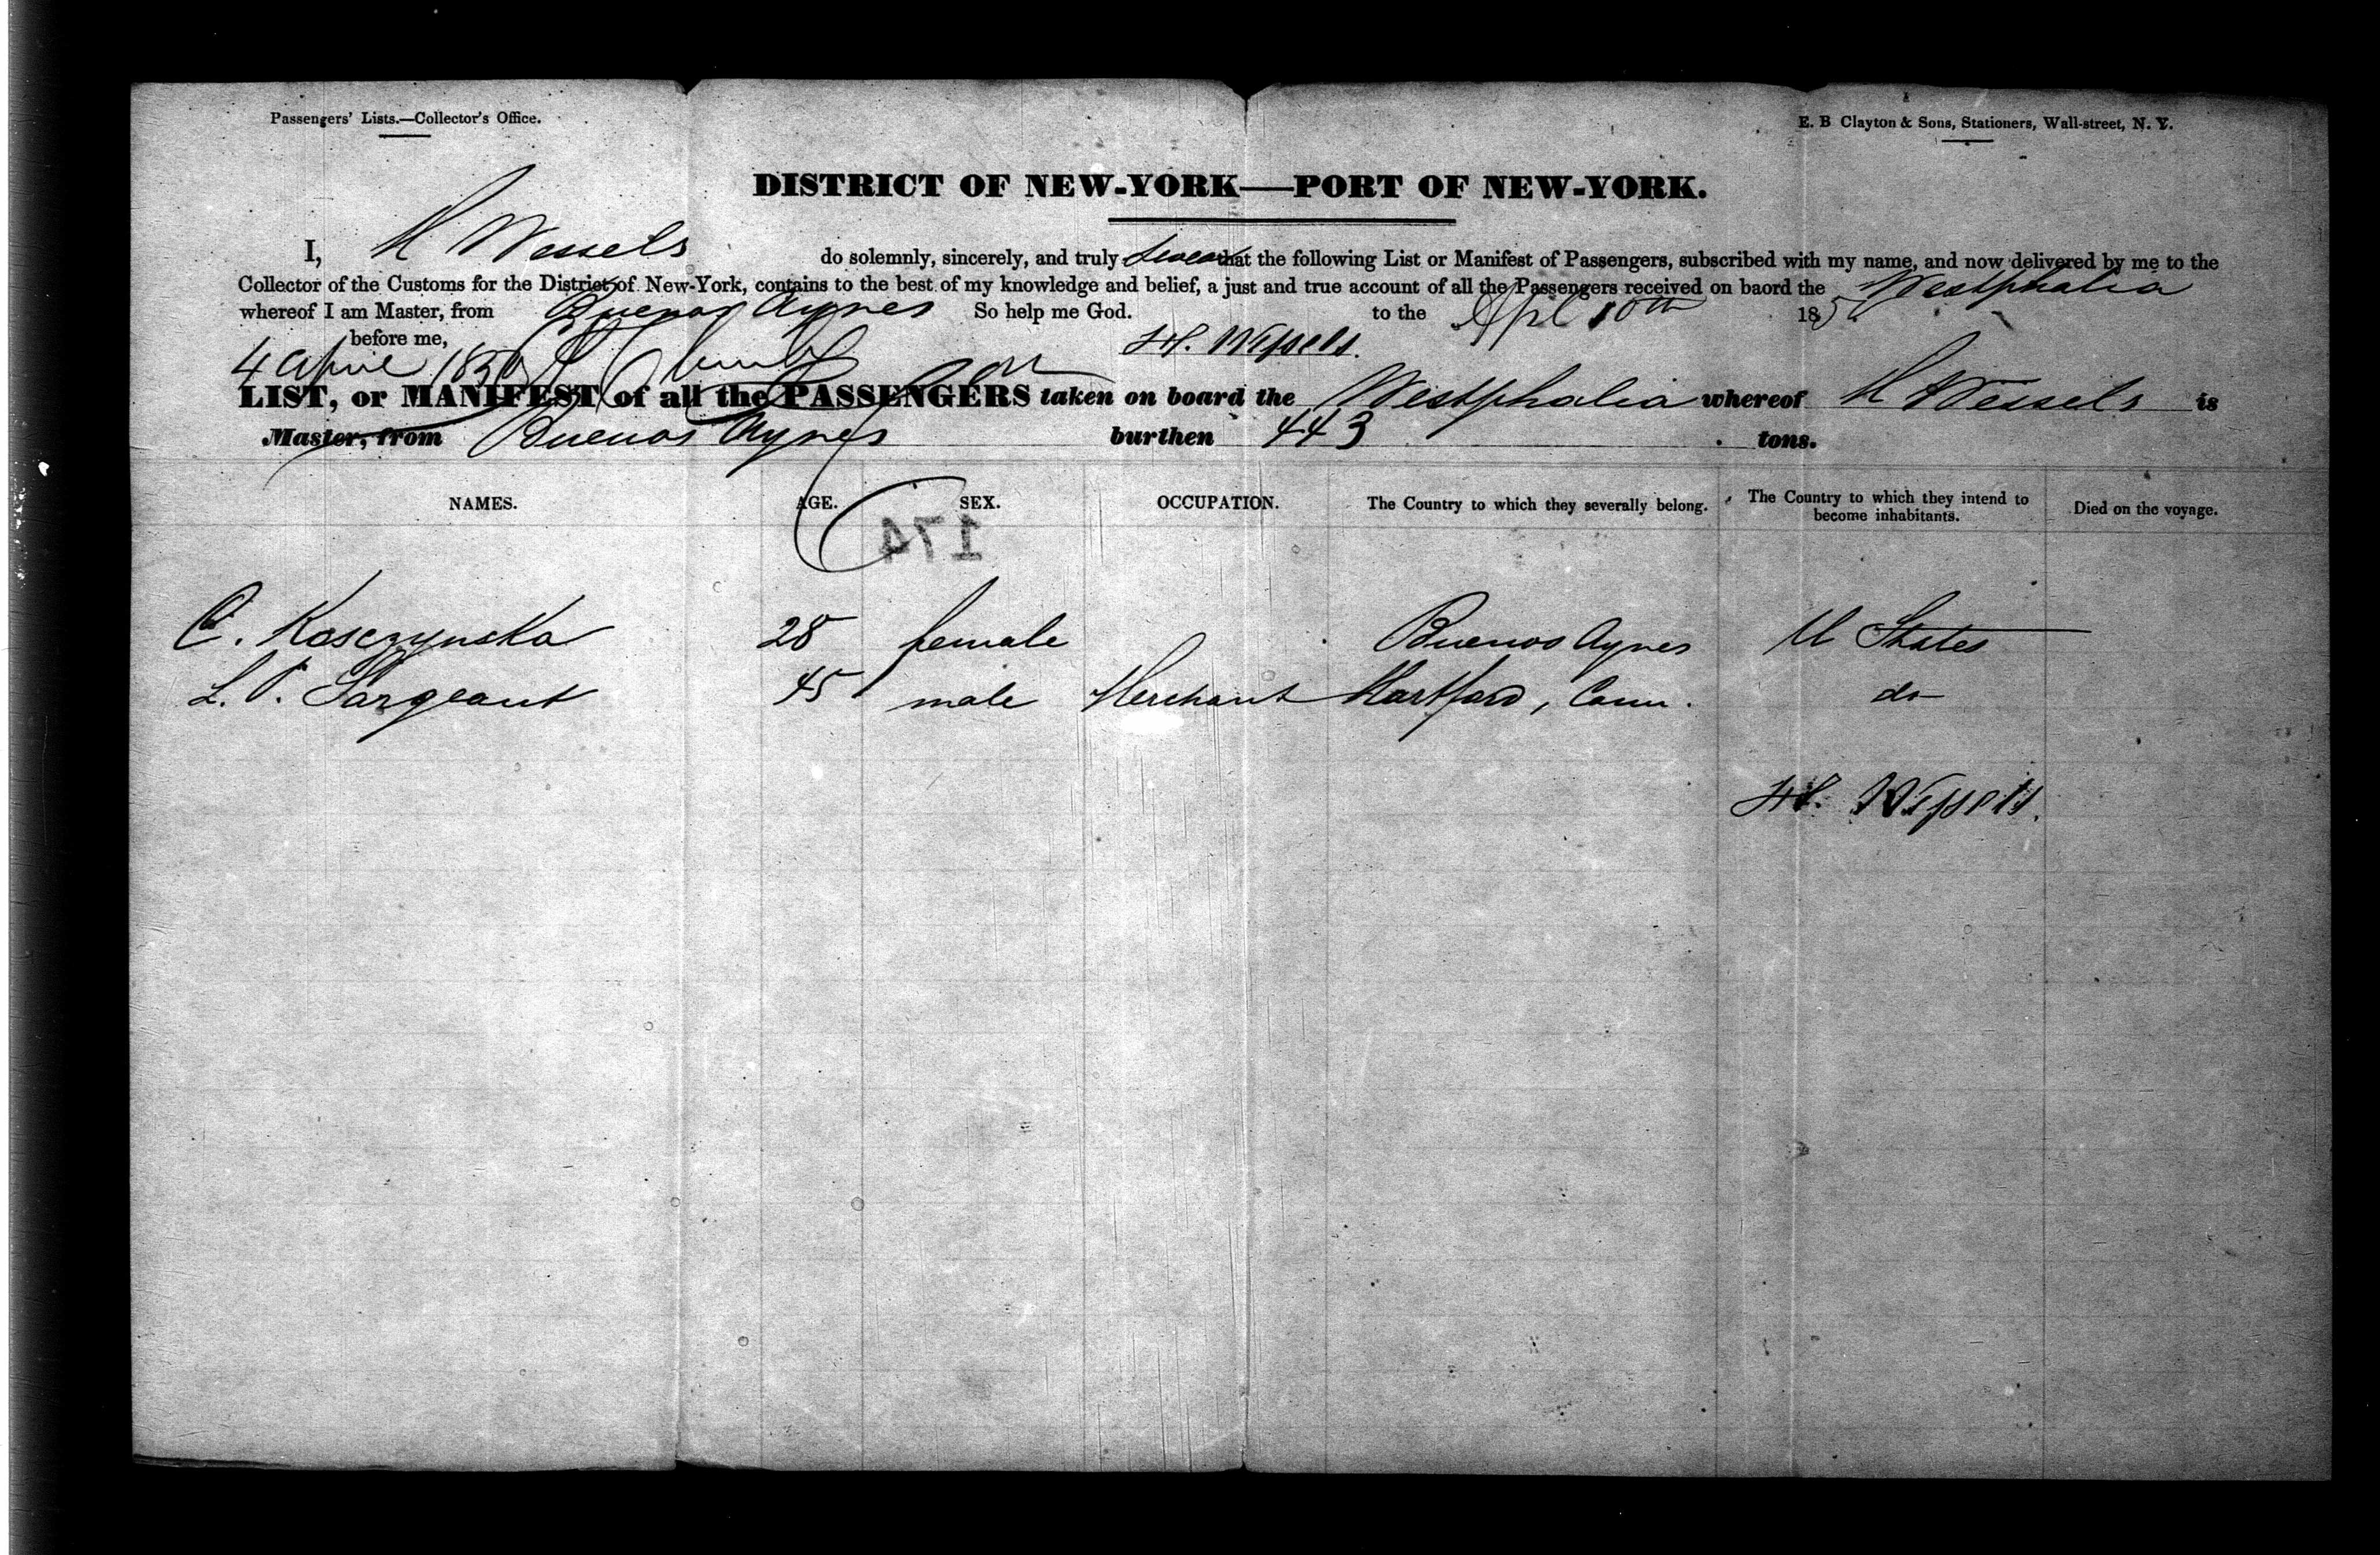 Passengers' Lists.—Collector's Office.
E. B Clayton & Sons, Stationers, Wall-street, N. Y.
DISTRICT OF NEW-YORK—PORT OF NEW-YORK.
I, H Wessels do solemnly, sincerely, and truly swear that the following List or Manifest of Passengers, subscribed with my name, and now delivered by me to the
Collector of the Customs for the District of New-York, contains to the best of my knowledge and belief, a just and true account of all the Passengers received on baord the Westphalia
whereof I am Master, from Buenos Ayres So help me God. to the April 10th 185
before me, H. Wessels.
4 April 185
LIST, or MANIFEST of all the PASSENGERS taken on board the Westphalia whereof H Wessels is
Master, from Buenos Ayres burthen 443 tons.
NAMES. AGE. SEX. OCCUPATION. The Country to which they severally belong. The Country to which they intend to become inhabitants. Died on the voyage.
174
C. Kosczynska 28 female Buenos Ayres U States
L. P. Sargeant 45 male Merchant Hartford, Conn. do
H. Wessels.